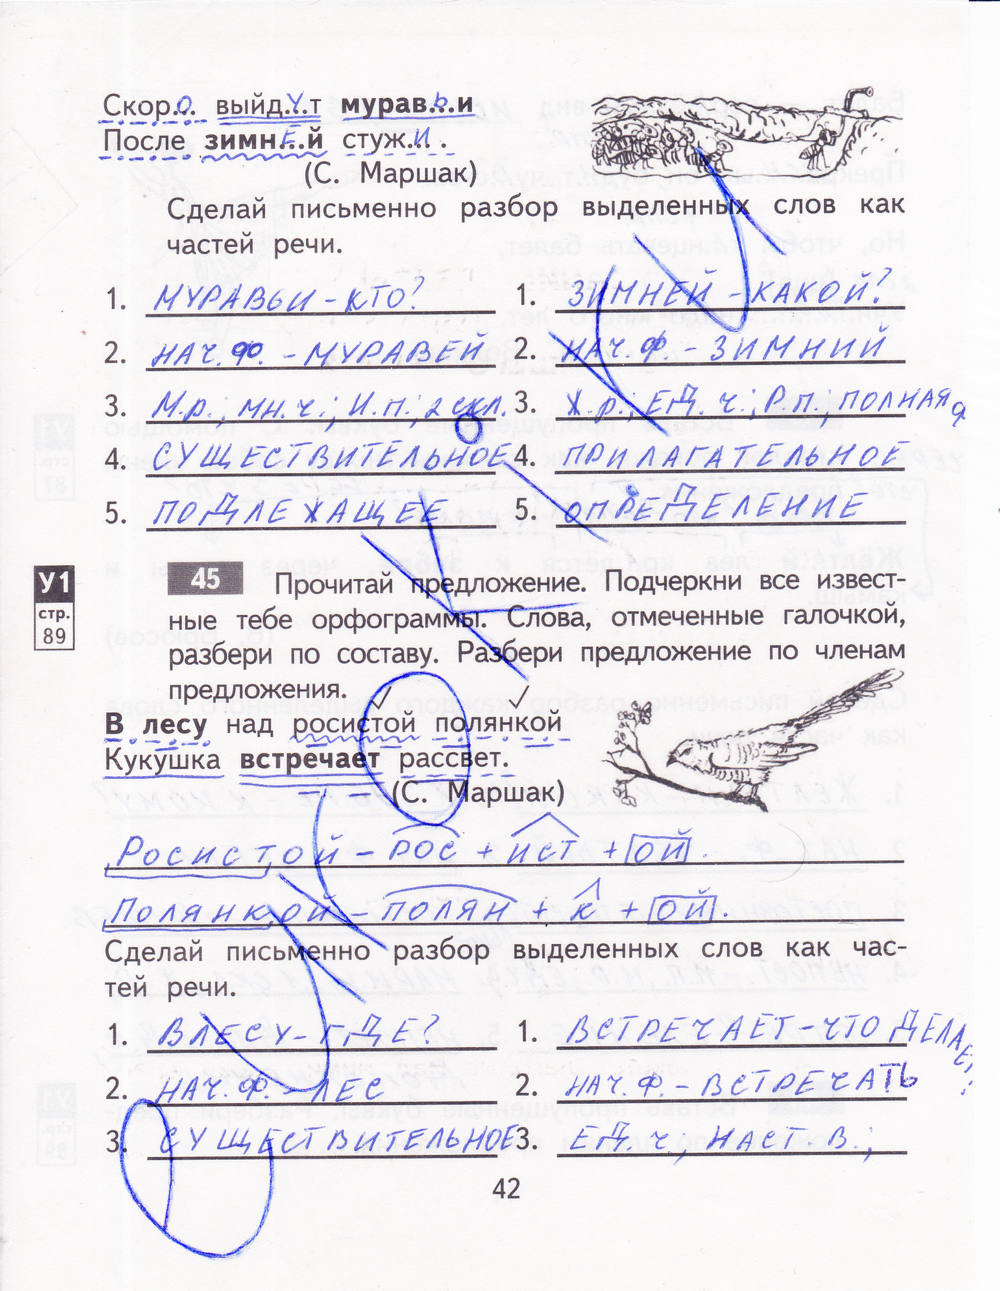 Скор.О. выйд.У.т мурав.Ь.и
После зимн.Е.й стуж.И.
(С. Маршак)
Сделай письменно разбор выделенных слов как
частей речи.
1. МУРАВЬИ - КТО?
2. НАЧ. Ф. - МУРАВЕЙ
3. М.р., мн.ч.; И.п; 2 скл.
4. СУЩЕСТВИТЕЛЬНОЕ
5. ПОДЛЕЖАЩЕЕ
1. ЗИМНЕЙ - КАКОЙ?
2. НАЧ. Ф - ЗИМНИЙ
3. Ж.р.; ЕД. ч.; Р.п; ПОЛНАЯ
4. ПРИЛАГАТЕЛЬНОЕ
5. ОПРЕДЕЛЕНИЕ
У1
стр.
89
45 Прочитай предложение. Подчеркни все извест-
ные тебе орфограммы. Слова, отмеченные галочкой,
разбери по составу. Разбери предложение по членам
предложения.
В лесу над росистой полянкой
Кукушка встречает рассвет.
(С. Маршак)
Росистой - РОС + ИСТ + ОЙ.
Полянкой - ПОЛЯН + К + ОЙ.
Сделай письменно разбор выделенных слов как час-
тей речи.
1. В ЛЕСУ - ГДЕ?
2. НАЧ. Ф. - ЛЕС
3. СУЩЕСТВИТЕЛЬНОЕ
1. ВСТРЕЧАЕТ - ЧТО ДЕЛАЕТ?
2. НАЧ. Ф. - ВСТРЕЧАТЬ
3. ЕД. ч.; НАСТ. В.;
42